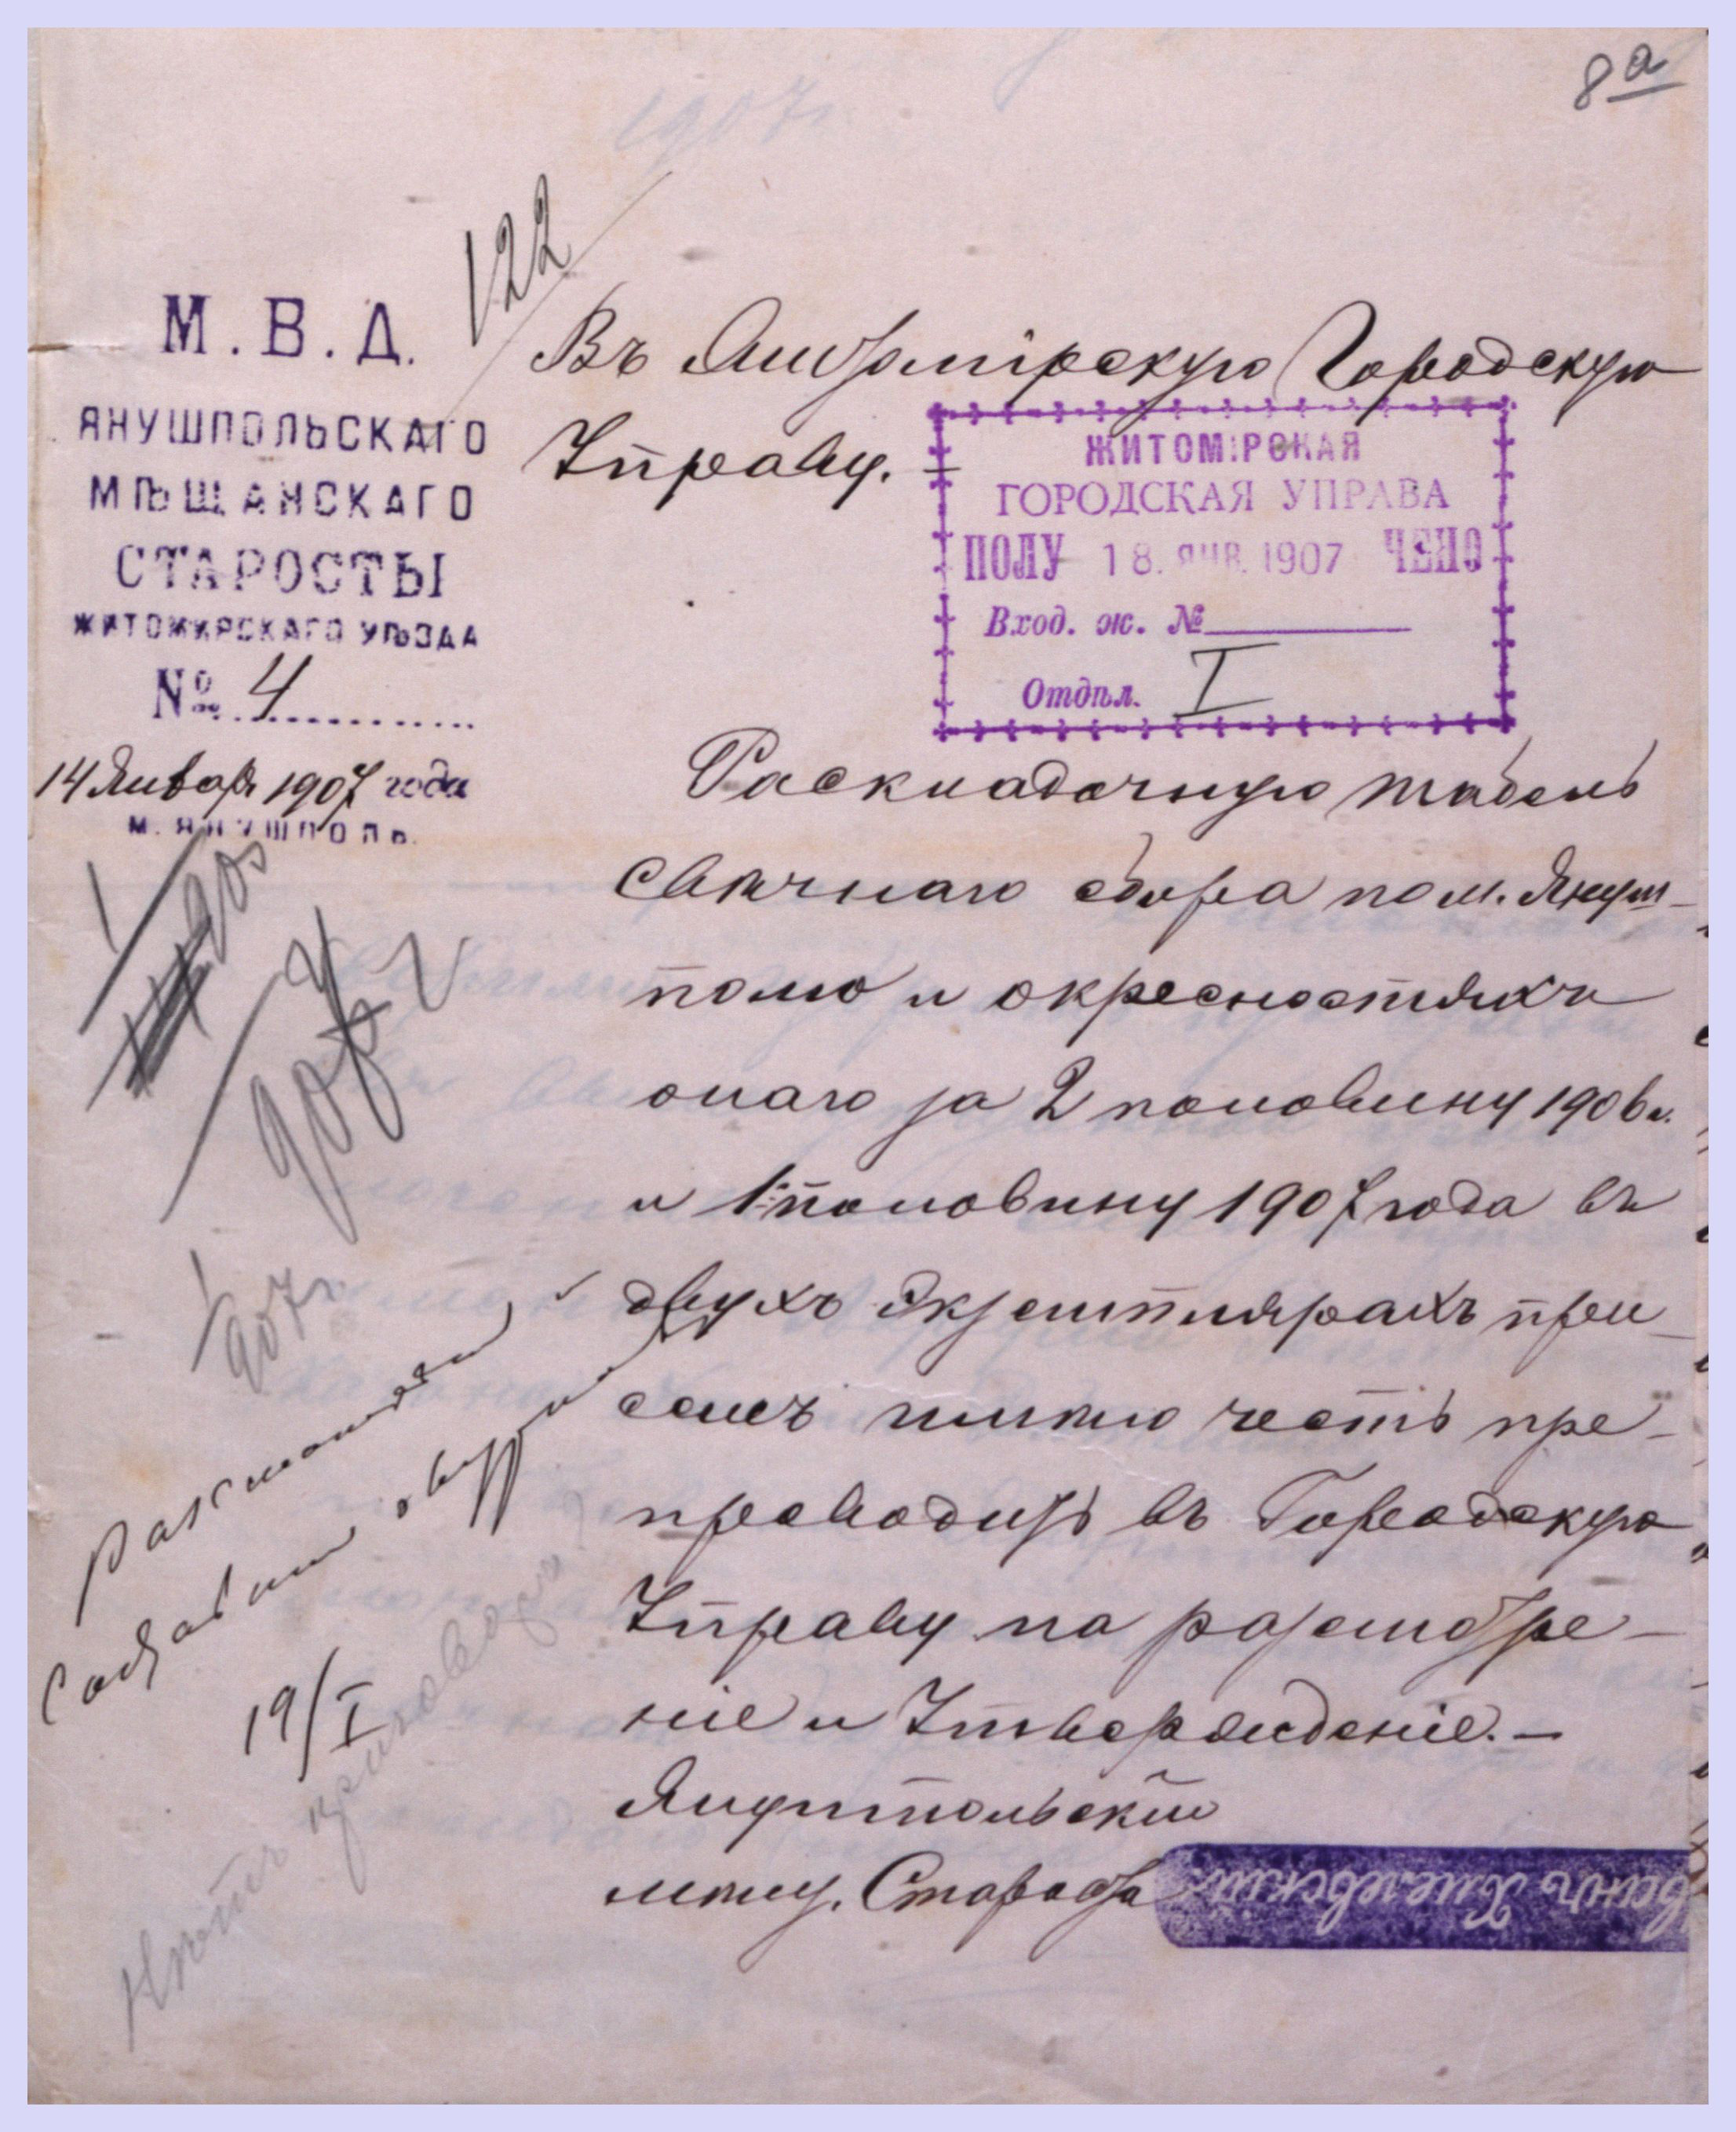 8а
122
М.В.Д.
ЯНУШПОЛЬСКАГО
МѢЩАНСКАГО
СТАРОСТЫ
ЖИТОМИРСКАГО УѢЗДА
№ 4
14 Января 1907 года
м. ЯНУШПОЛЬ.
Въ Житомірскую Городскую
Управу. –
ЖИТОМІРСКАЯ
ГОРОДСКАЯ УПРАВА
ПОЛУ 18. ЯНВ. 1907 ЧЕНО
Вход. ж. №
Отдѣл. I
Раскладочную табель
свѣчнаго сбора по м. Януш-
полю и окресностяхъ
онаго за 2 половину 1906 г.
и 1 половину 1907 года въ
двухъ экземплярахъ при
семъ имѣю честь пре-
проводить въ Городскую
Управу на разсмотре-
ніе и Утвержденіе. –
Янушпольскій
мѣщ. Староста
Хмелевскій
907 г
19/I